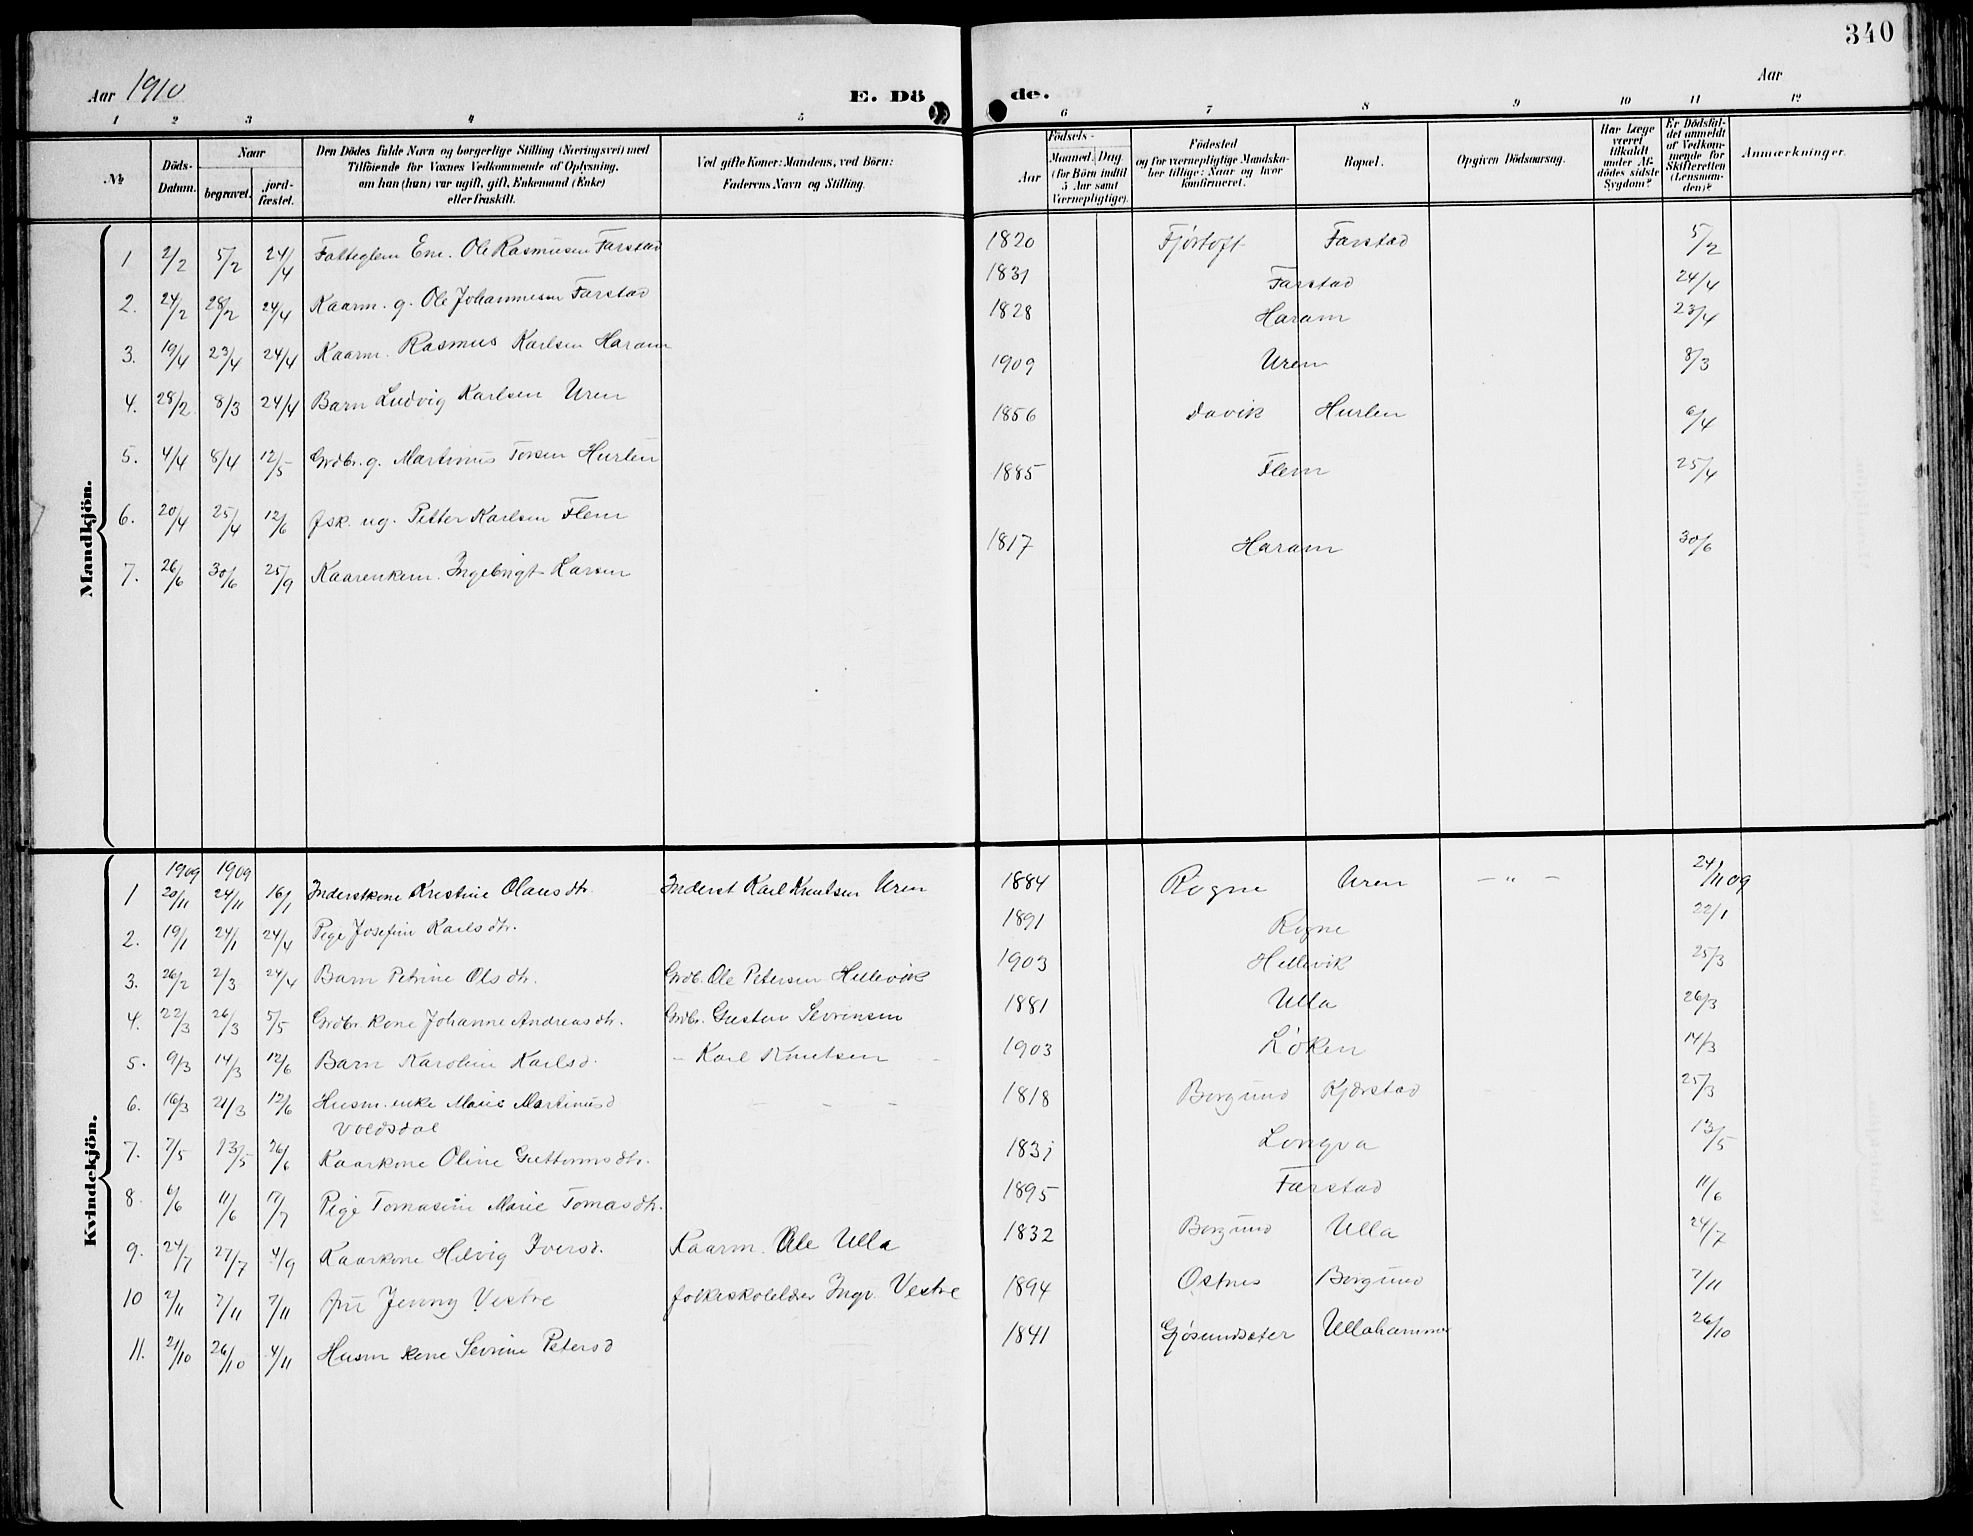 340
Aar 1910 E. Dö de. Aar
1 2 3 4 5 6 7 8 9 10 11 12
№
Döds-Datum.
Naar
begravet.
jord-fæstet.
Den Dödes fulde Navn og borgerlige Stilling (Næringsvei) med
Tilföiende for Voxnes Vedkommende af Oplysning,
om han (hun) var ugift, gift, Enkemand (Enke)
eller fraskilt.
Ved gifte Koner: Mandens, ved Börn:
Faderens Navn og Stilling.
Födsels-
Aar
Maaned. Dag
(for Börn indtil
5 Aar samt
Værnepligtige).
Födested
og for værnepligtige Mandska-
ber tillige: Naar og hvor
konfirmeret.
Bopæl.
Opgiven Dödsaarsag.
Har Læge
været
tilkaldt
under Af-
dödes sidste
Sygdom?
Er Dödsfal-
det anmeldt
af Vedkom-
mende for
Skifteretten
(Lensman-
den)?
Anmærkninger.
Mandkjön.
1 2/2 5/2 24/4 Fatteglem Em. Ole Rasmusen Farstad 1820 Fjörtoft Farstad 5/2
2. 24/2 28/2 24/4 Kaarm. g. Ole Johannesen Farstad 1831 Farstad 24/4
3. 19/4 23/4 24/4 Kaarm. Rasmus Karlsen Haram 1828 Haram 23/4
4. 28/2 8/3 24/4 Barn Ludvig Karlsen Uren 1909 Uren 8/3
5. 4/4 8/4 12/5 Grdbr. g. Martinus Tonsen Hurlen 1856 Davik Hurlen 6/4
6. 20/4 25/4 12/6 fsk. ug. Petter Karlsen Flem 1885 Flem 25/4
7. 26/6 30/6 25/9 Kaarenkem. Ingebrigt Larsen 1817 Haram 30/6
Kvindekjön.
1909 1909
1 20/11 24/11 16/1 Inderstkone Kristine Olausdtr. Inderst Karl Knutsen Uren 1884 Rogne Uren — " — 24/11 09
2. 19/1 24/1 24/4 Pige Josefine Karlsdtr. 1891 Rogne 22/1
3. 26/2 2/3 24/4 Barn Petrine Olsdtr. Grdb. Ole Petersen Hellevik 1903 Hellevik 25/3
4. 22/3 26/3 5/5 Grdbr. kone Johanne Andreasdtr. Grdbr. Gustav Sevrinsen 1881 Ulla 26/3
5. 9/3 14/3 12/6 Barn Karoline Karlsd. – Karl Knutsen 1903 Löken 14/3
6. 16/3 21/3 12/6 Husm. enke Marie Martinusd – – – 1818 Borgund Kjærstad 25/3
Voldsdal
7. 7/5 13/5 26/6 Kaarkone Oline Guttormsdtr. 1831 Longva 13/5
8. 6/6 11/6 17/7 Pige Tomasine Marie Tomasdtr. 1895 Farstad 11/6
9. 24/7 27/7 4/9 Kaarkone Hilvig Iversd. Kaarm. Ole Ulla 1832 Borgund Ulla 24/7
10 2/11 7/11 7/11 fru Jenny Vestre folkeskolelærer Ingv. Vestre 1894 Ostnes Borgund 7/11
11. 21/10 26/10 4/11 Husm kone Sevrine Petersd 1841 Gjösundsæter Ullahammer 26/10